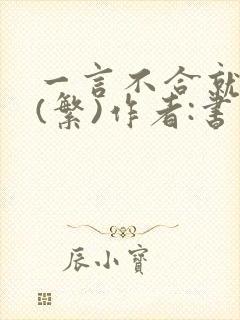 一言不合就
(繁)作者:書
辰小寶